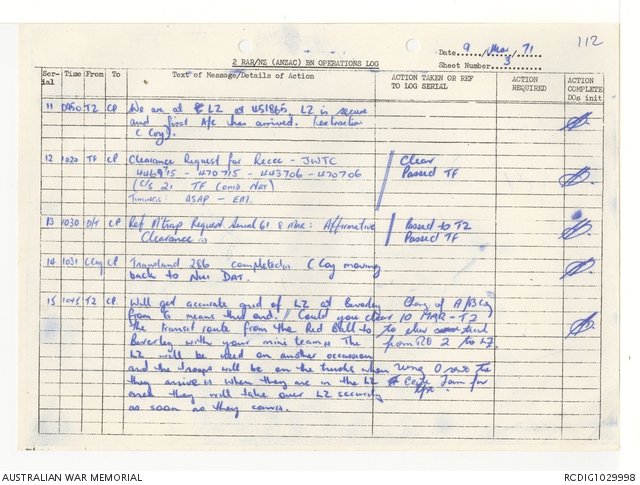 112
Date 9 Mar 71
2 RAR/NZ (ANZAC) BN OPERATIONS LOG
Sheet Number 3
Ser-ial Time From To Text of Message/Details of Action ACTION TAKEN OR REF TO LOG SERIAL ACTION REQUIRED ACTION COMPLETE DOs init
11 0950 T2 CP We are at LZ at 451865 LZ is secure
and first A/c has arrived. (extraction
C Coy).
12 1020 TF CP Clearance Request for Recce - JWTC Clear
446915 - 470715 - 443706 - 470706 Passed TF
(C/S 21 TF Comd Net)
Timings: ASAP - ENT.
13 1030 CP Ref Request Serial 61 8 Mar: Affirmative Passed to T2
Clearance Passed TF
14 1031 C Coy CP Transland 286 completed C Coy moving
back to Nui Dat.
15 1045 T2 CP Will get accurate grid of LZ at Beverley
from G means this end. // Could you clear 10 MAR - T2
the transit route from the Red Ball to
Beverley with your mini team The from RD 2 to LZ
LZ will be used on another occasion
and the troops will be on the trucks when
they arrive When they are in the LZ
area they will take over LZ security
as soon as they can.
AUSTRALIAN WAR MEMORIAL RCDIG1029998